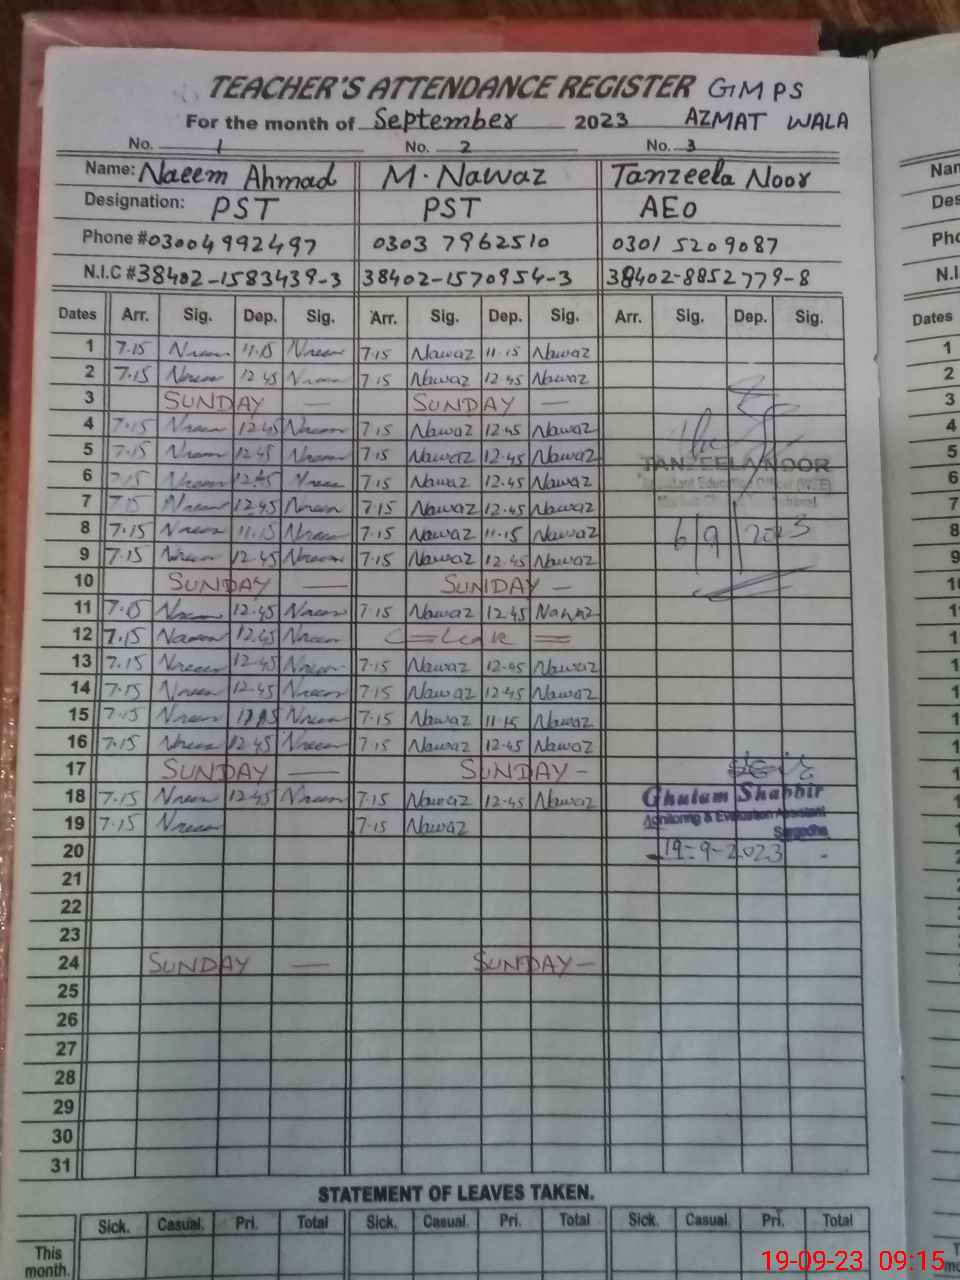 TEACHER'S ATTENDANCE REGISTER GMPS
For the month of September 2023 AZMAT WALA
No. 1 No. 2 No. 3
Name: Naeem Ahmad M. Nawaz Tanzeela Noor
Designation: PST PST AEO
Phone # 03004992497 0303 7962510 0301 5209087
N.I.C # 38402-1583439-3 38402-1570954-3 38402-8852779-8
Dates Arr. Sig. Dep. Sig. Arr. Sig. Dep. Sig. Arr. Sig. Dep. Sig.
1 7.15 Naeem 11.15 Naeem 7.15 Nawaz 11.15 Nawaz
2 7.15 Naeem 12.45 Naeem 7.15 Nawaz 12.45 Nawaz
3 SUNDAY — SUNDAY —
4 7.15 Naeem 12.45 Naeem 7.15 Nawaz 12.45 Nawaz
5 7.15 Naeem 12.45 Naeem 7.15 Nawaz 12.45 Nawaz
TANZEELA NOOR
6 7.15 Naeem 12.45 Naeem 7.15 Nawaz 12.45 Nawaz
Assistant Education Officer
7 7.15 Naeem 12.45 Naeem 7.15 Nawaz 12.45 Nawaz
8 7.15 Naeem 11.15 Naeem 7.15 Nawaz 11.15 Nawaz 6/9/2023
9 7.15 Naeem 12.45 Naeem 7.15 Nawaz 12.45 Nawaz
10 SUNDAY — SUNDAY —
11 7.15 Naeem 12.45 Naeem 7.15 Nawaz 12.45 Nawaz
12 7.15 Naeem 12.45 Naeem
13 7.15 Naeem 12.45 Naeem 7.15 Nawaz 12.45 Nawaz
14 7.15 Naeem 12.45 Naeem 7.15 Nawaz 12.45 Nawaz
15 7.15 Naeem 11.15 Naeem 7.15 Nawaz 11.15 Nawaz
16 7.15 Naeem 12.45 Naeem 7.15 Nawaz 12.45 Nawaz
17 SUNDAY — SUNDAY —
18 7.15 Naeem 12.45 Naeem 7.15 Nawaz 12.45 Nawaz Ghulam Shabbir
19 7.15 Naeem 7.15 Nawaz Monitoring & Evaluation Assistant
Sargodha
20 19-9-2023
21
22
23
24 SUNDAY — SUNDAY —
25
26
27
28
29
30
31
STATEMENT OF LEAVES TAKEN.
Sick. Casual. Pri. Total Sick. Casual. Pri. Total Sick. Casual. Pri. Total
This month.
19-09-23 09:15